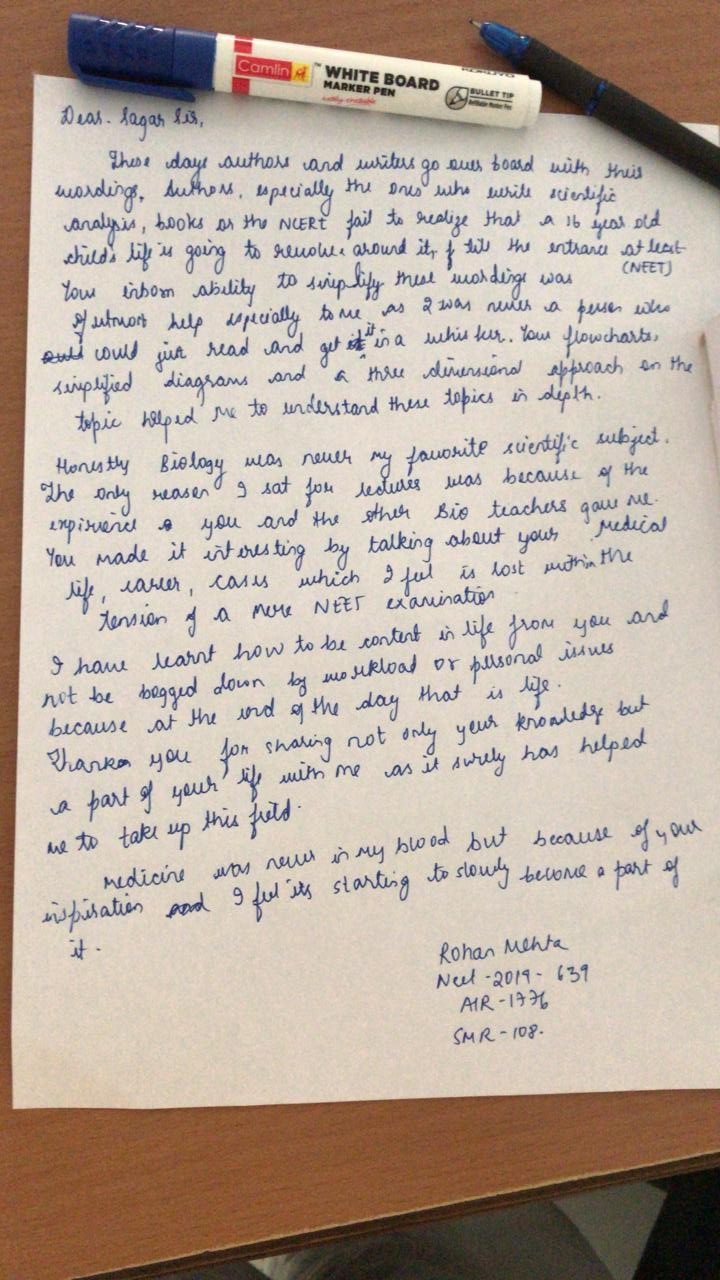 Camlin
KOKUYO
WHITE BOARD
MARKER PEN
BULLET TIP
Refillable Marker Pen
Dear. Sagar Sir,
These days authors and writers go over board with their
wordings. Authors, especially the ones who write scientific
analysis, books or the NCERT fail to realize that a 16 year old
child's life is going to revolve around it, till the entrance at least
(NEET)
Your inborn ability to simplify these wordings was
of utmost help especially to me as I was never a person who
could just read and get it in a whisker. Your flowcharts,
simplified diagrams and a three dimensional approach on the
topic helped me to understand these topics in depth.
Honestly Biology was never my favorite scientific subject.
The only reason I sat for lectures was because of the
expirience you and the other Bio teachers gave me.
You made it interesting by talking about your Medical
life, career, cases which I feel is lost within the
tension of a mere NEET examination
I have learnt how to be content in life from you and
not be bogged down by workload or personal issues
because at the end of the day that is life.
Thank you for sharing not only your knowledge but
a part of your life with me as it surely has helped
me to take up this field.
Medicine was never in my blood but because of your
inspiration I feel its starting to slowly become a part of
it.
Rohan Mehta
Neet - 2019 - 639
AIR - 1776
SMR - 108.